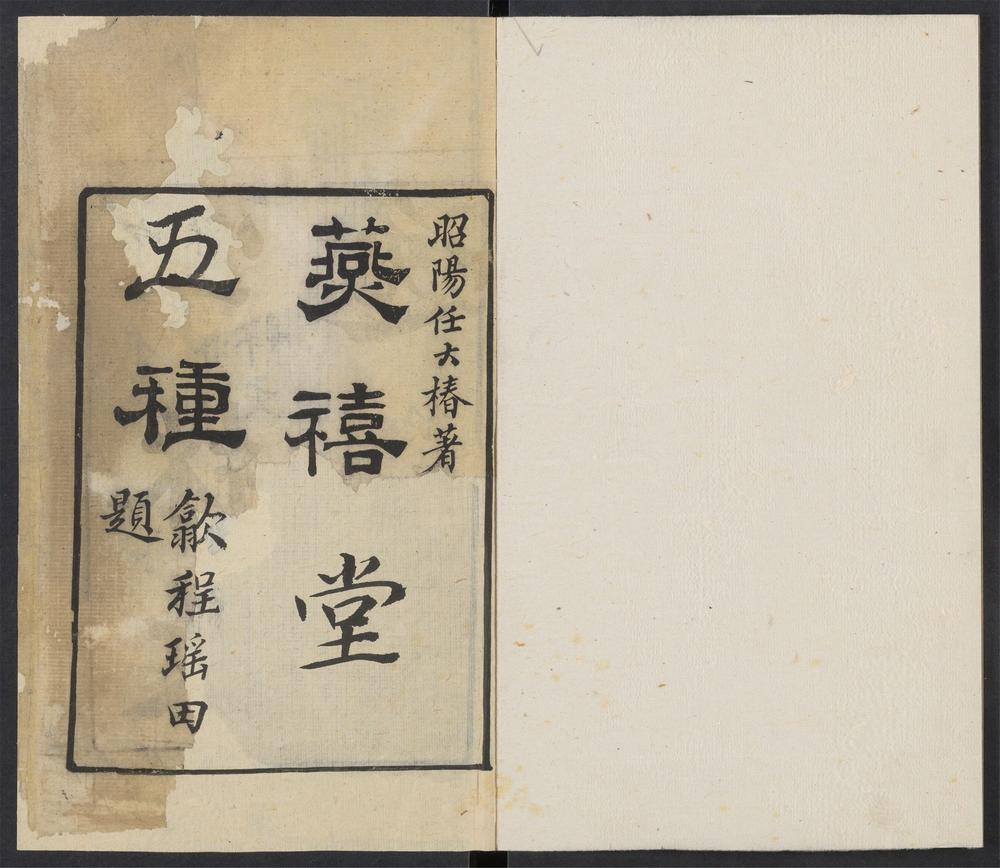 昭陽任大椿著
燕禧堂
五種
歙程瑶田
題